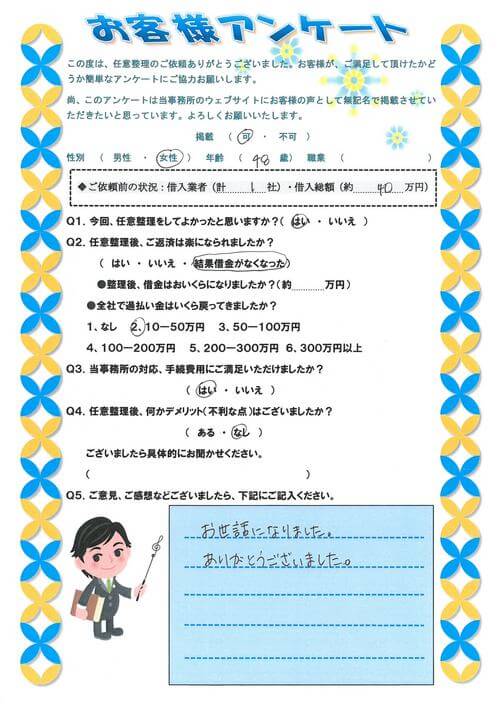 お客様アンケート
この度は、任意整理のご依頼ありがとうございました。お客様が、ご満足して頂けたかど
うか簡単なアンケートにご協力お願いします。
尚、このアンケートは当事務所のウェブサイトにお客様の声として無記名で掲載させてい
ただきたいと思っています。よろしくお願いいたします。
掲載 ( 可 ・ 不可 )
性別 ( 男性 ・ 女性 ) 年齢 ( 48 歳) 職業 ( )
◆ご依頼前の状況:借入業者(計 1 社)・借入総額(約 40 万円)
Q1. 今回、任意整理をしてよかったと思いますか?( はい ・ いいえ )
Q2. 任意整理後、ご返済は楽になられましたか?
( はい ・ いいえ ・ 結果借金がなくなった)
●整理後、借金はおいくらになりましたか?(約............万円)
●全社で過払い金はいくら戻ってきましたか?
1、なし 2、10-50万円 3、50-100万円
4、100-200万円 5、200-300万円 6、300万円以上
Q3. 当事務所の対応、手続費用にご満足いただけましたか?
( はい ・ いいえ )
Q4. 任意整理後、何かデメリット(不利な点)はございましたか?
( ある ・ なし )
ございましたら具体的にお聞かせください。
( )
Q5、ご意見、ご感想などございましたら、下記にご記入ください。
お世話になりました。
ありがとうございました。